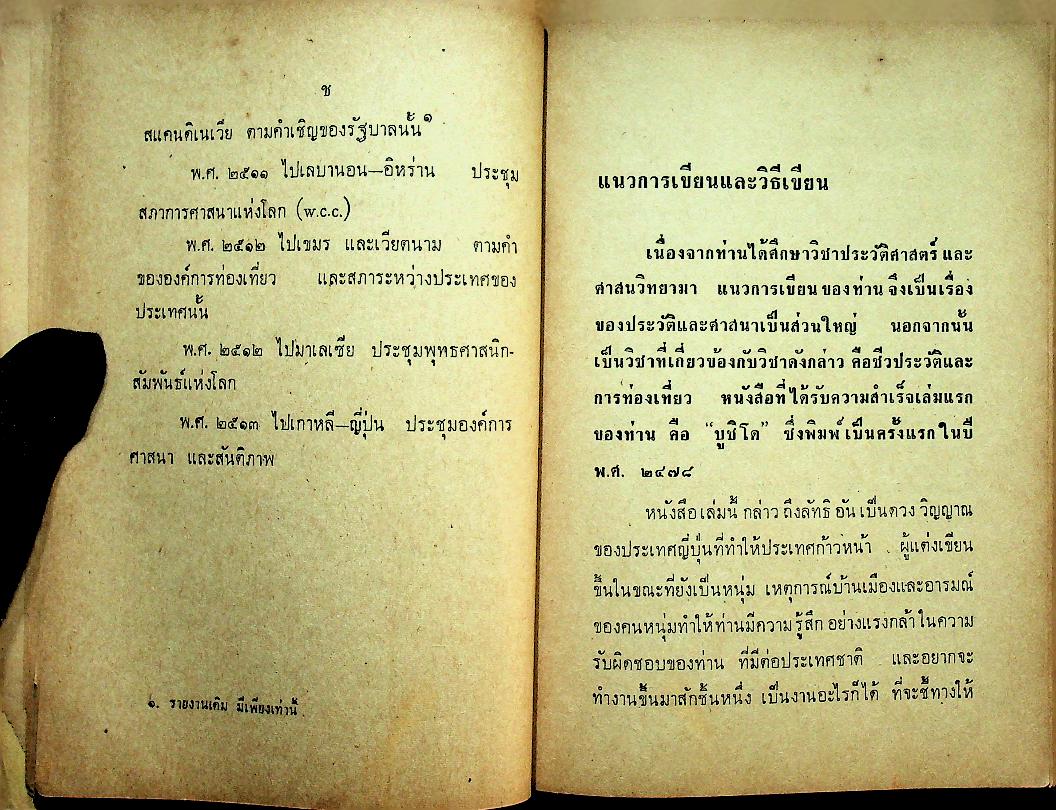 ช
สแคนดิเนเวีย ตามคำเชิญของรัฐบาลนั้น๑
พ.ศ. ๒๕๑๑ ไปเลบานอน—อิหร่าน ประชุม
สภาการศาสนาแห่งโลก (w.c.c.)
พ.ศ. ๒๕๑๒ ไปเขมร และเวียตนาม ตามคำ
ขององค์การท่องเที่ยว และสภาระหว่างประเทศของ
ประเทศนั้น
พ.ศ. ๒๕๑๒ ไปมาเลเซีย ประชุมพุทธศาสนิก-
สัมพันธ์แห่งโลก
พ.ศ. ๒๕๑๓ ไปเกาหลี—ญี่ปุ่น ประชุมองค์การ
ศาสนา และสันติภาพ
๑. รายงานเดิม มีเพียงเท่านี้
แนวการเขียนและวิธีเขียน
เนื่องจากท่านได้ศึกษาวิชาประวัติศาสตร์ และ
ศาสนวิทยามา แนวการเขียนของท่าน จึงเป็นเรื่อง
ของประวัติและศาสนาเป็นส่วนใหญ่ นอกจากนั้น
เป็นวิชาที่เกี่ยวข้องกับวิชาดังกล่าว คือชีวประวัติและ
การท่องเที่ยว หนังสือที่ได้รับความสำเร็จเล่มแรก
ของท่าน คือ “บูชิโด” ซึ่งพิมพ์เป็นครั้งแรกในปี
พ.ศ. ๒๔๗๘
หนังสือเล่มนี้ กล่าวถึงลัทธิ อันเป็นดวง วิญญาณ
ของประเทศญี่ปุ่นที่ทำให้ประเทศก้าวหน้า ผู้แต่งเขียน
ขึ้นในขณะที่ยังเป็นหนุ่ม เหตุการณ์บ้านเมืองและอารมณ์
ของคนหนุ่มทำให้ท่านมีความรู้สึก อย่างแรงกล้าในความ
รับผิดชอบของท่าน ที่มีต่อประเทศชาติ และอยากจะ
ทำงานขึ้นมาสักชิ้นหนึ่ง เป็นงานอะไรก็ได้ ที่จะชี้ทางให้